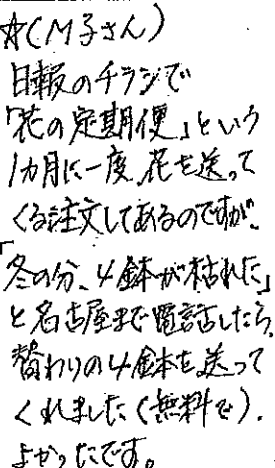 ☆(M子さん)
日報のチラシで
「花の定期便」という
1カ月に一度、花を送って
くる注文してあるのですが、
「冬の分、4鉢が枯れた」
と名古屋まで電話したら、
替わりの4鉢を送って
くれました(無料で)。
よかったです。